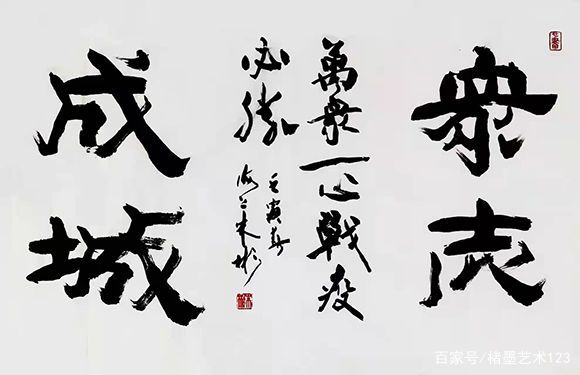 衆志
萬衆一心戰疫
必勝
壬寅春
海上木彬
成城
百家号/楮墨艺术123